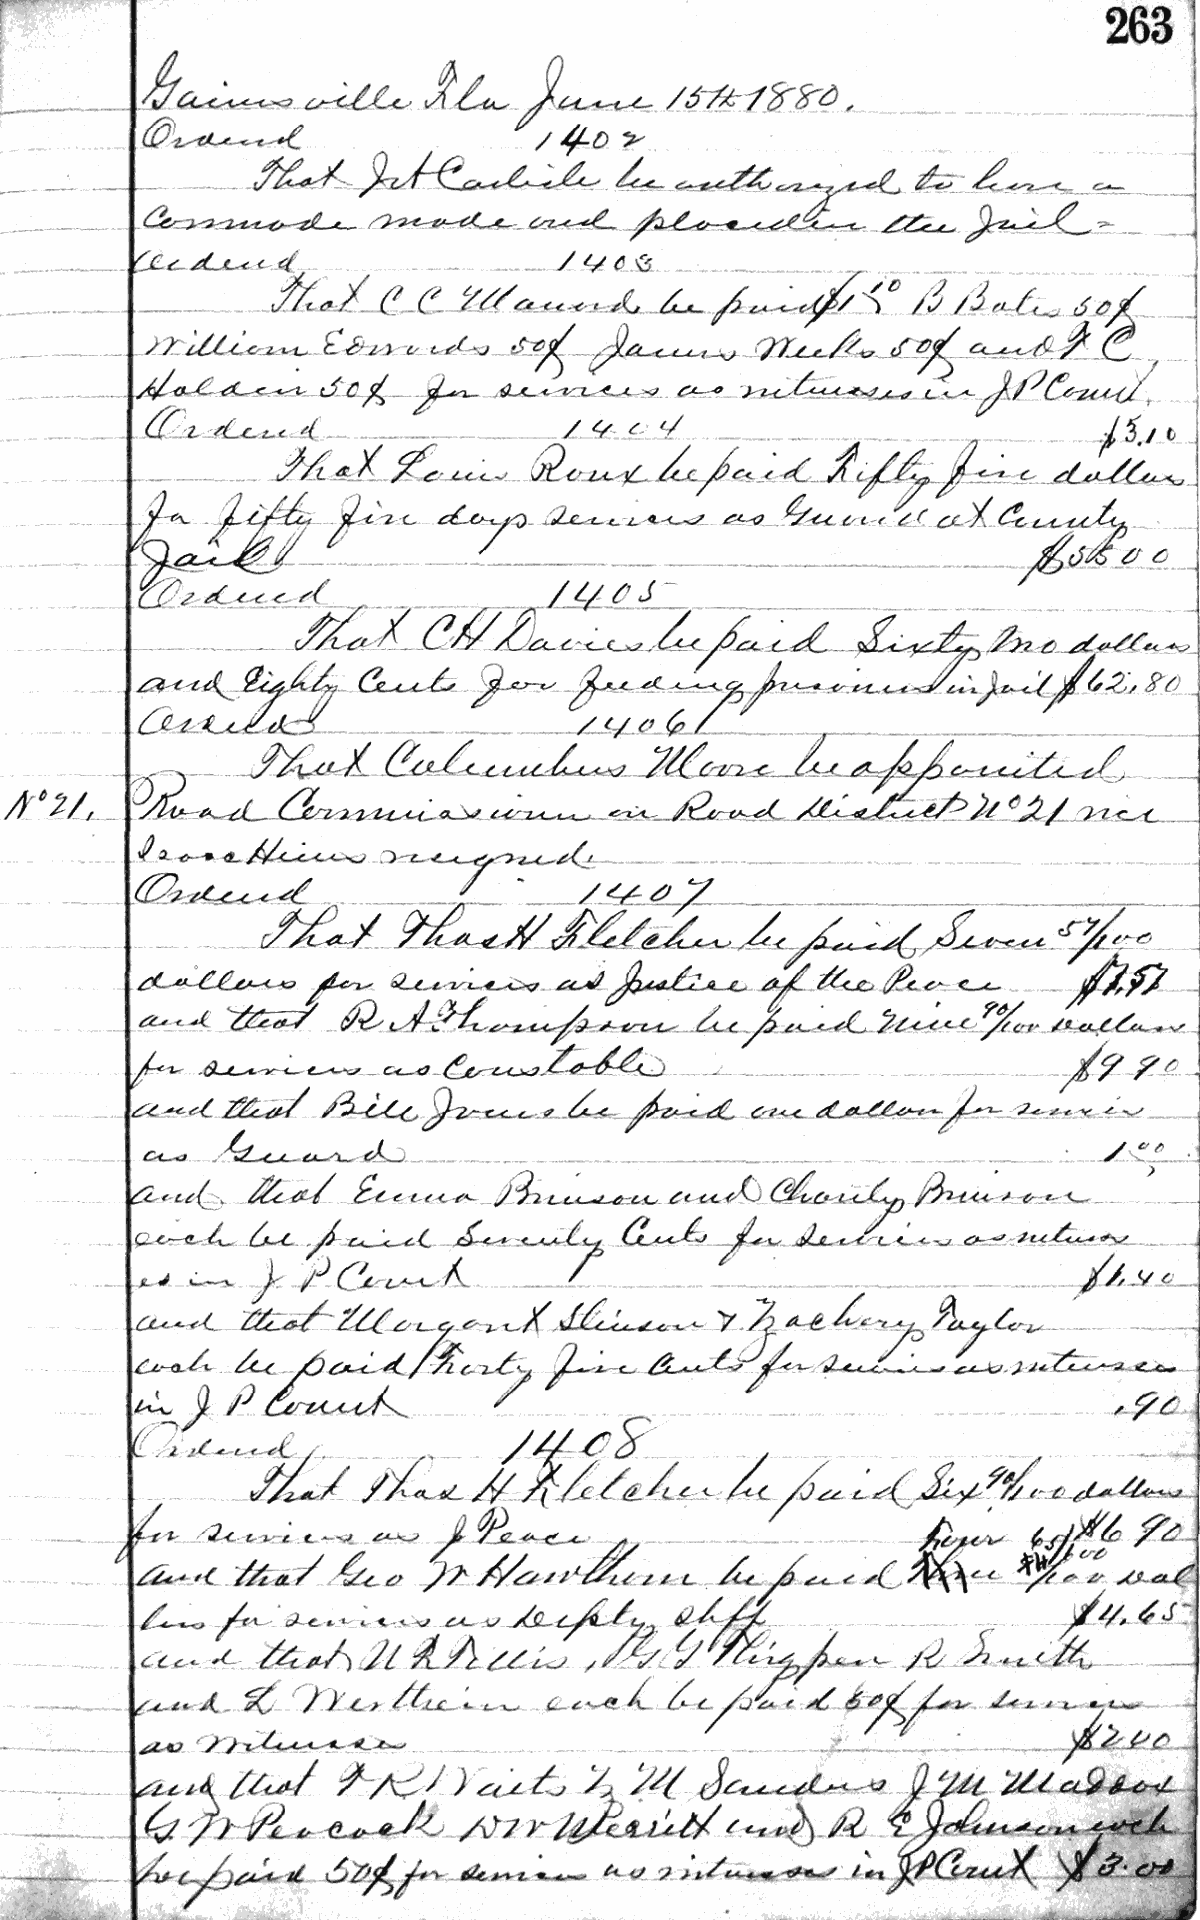 263
Gainesville Fla June 15th 1880.
Ordered 1402
That J A Carlisle be authorized to have a
commode made and placed in the Jail =
Ordered 1403
That C C Manard be paid $1 10 B Bates 50¢
William Edwards 50¢ James Weeks 50¢ and F C
Holden 50¢ for services as witnesses in J P Court.
Ordered 1404 $3.10
That Louis Roux be paid Fifty five dollars
for fifty five days services as Guard at County
Jail $55 00
Ordered 1405
That C H Davies be paid Sixty two dollars
and Eighty Cents for feeding prisoners in Jail $62.80
Ordered 1406
That Columbus Moore be appointed
No 21. Road Commissioner on Road District No 21 vice
Isaac Hines resigned
Ordered 1407
That Thas H Fletcher be paid Seven 57/100
dollars for services as Justice of the Peace $7.57
and that R A Thompson be paid Nine 90/100 Dollars
for services as Constable $9 90
and that Bill Jones be paid one dollar for services
as Guard 1 00
and that Emma Brinson and Charity Brinson
each be paid Seventy Cents for services as witness
es in J P Court $1.40
and that Margaret Stinson & Zachery Taylor
each be paid Forty five Cents for services as witnesses
in J P Court .90
Ordered 1408
That Thas H Fletcher be paid Six 90/100 dollars
for services as J Peace $6 90
Four 65/100
and that Geo W Hawthorn be paid Dol
lars for services as Depty Shff $4.65
and that G G Thigpen R Smith
and L Wertheim each be paid 50¢ for services
as witnesses $2 00
and that F R Waits M Sanders J M Maddox
G W Peacock D W Merritt and R E Johnson each
be paid 50¢ for services as witnesses in J P Court $3.00